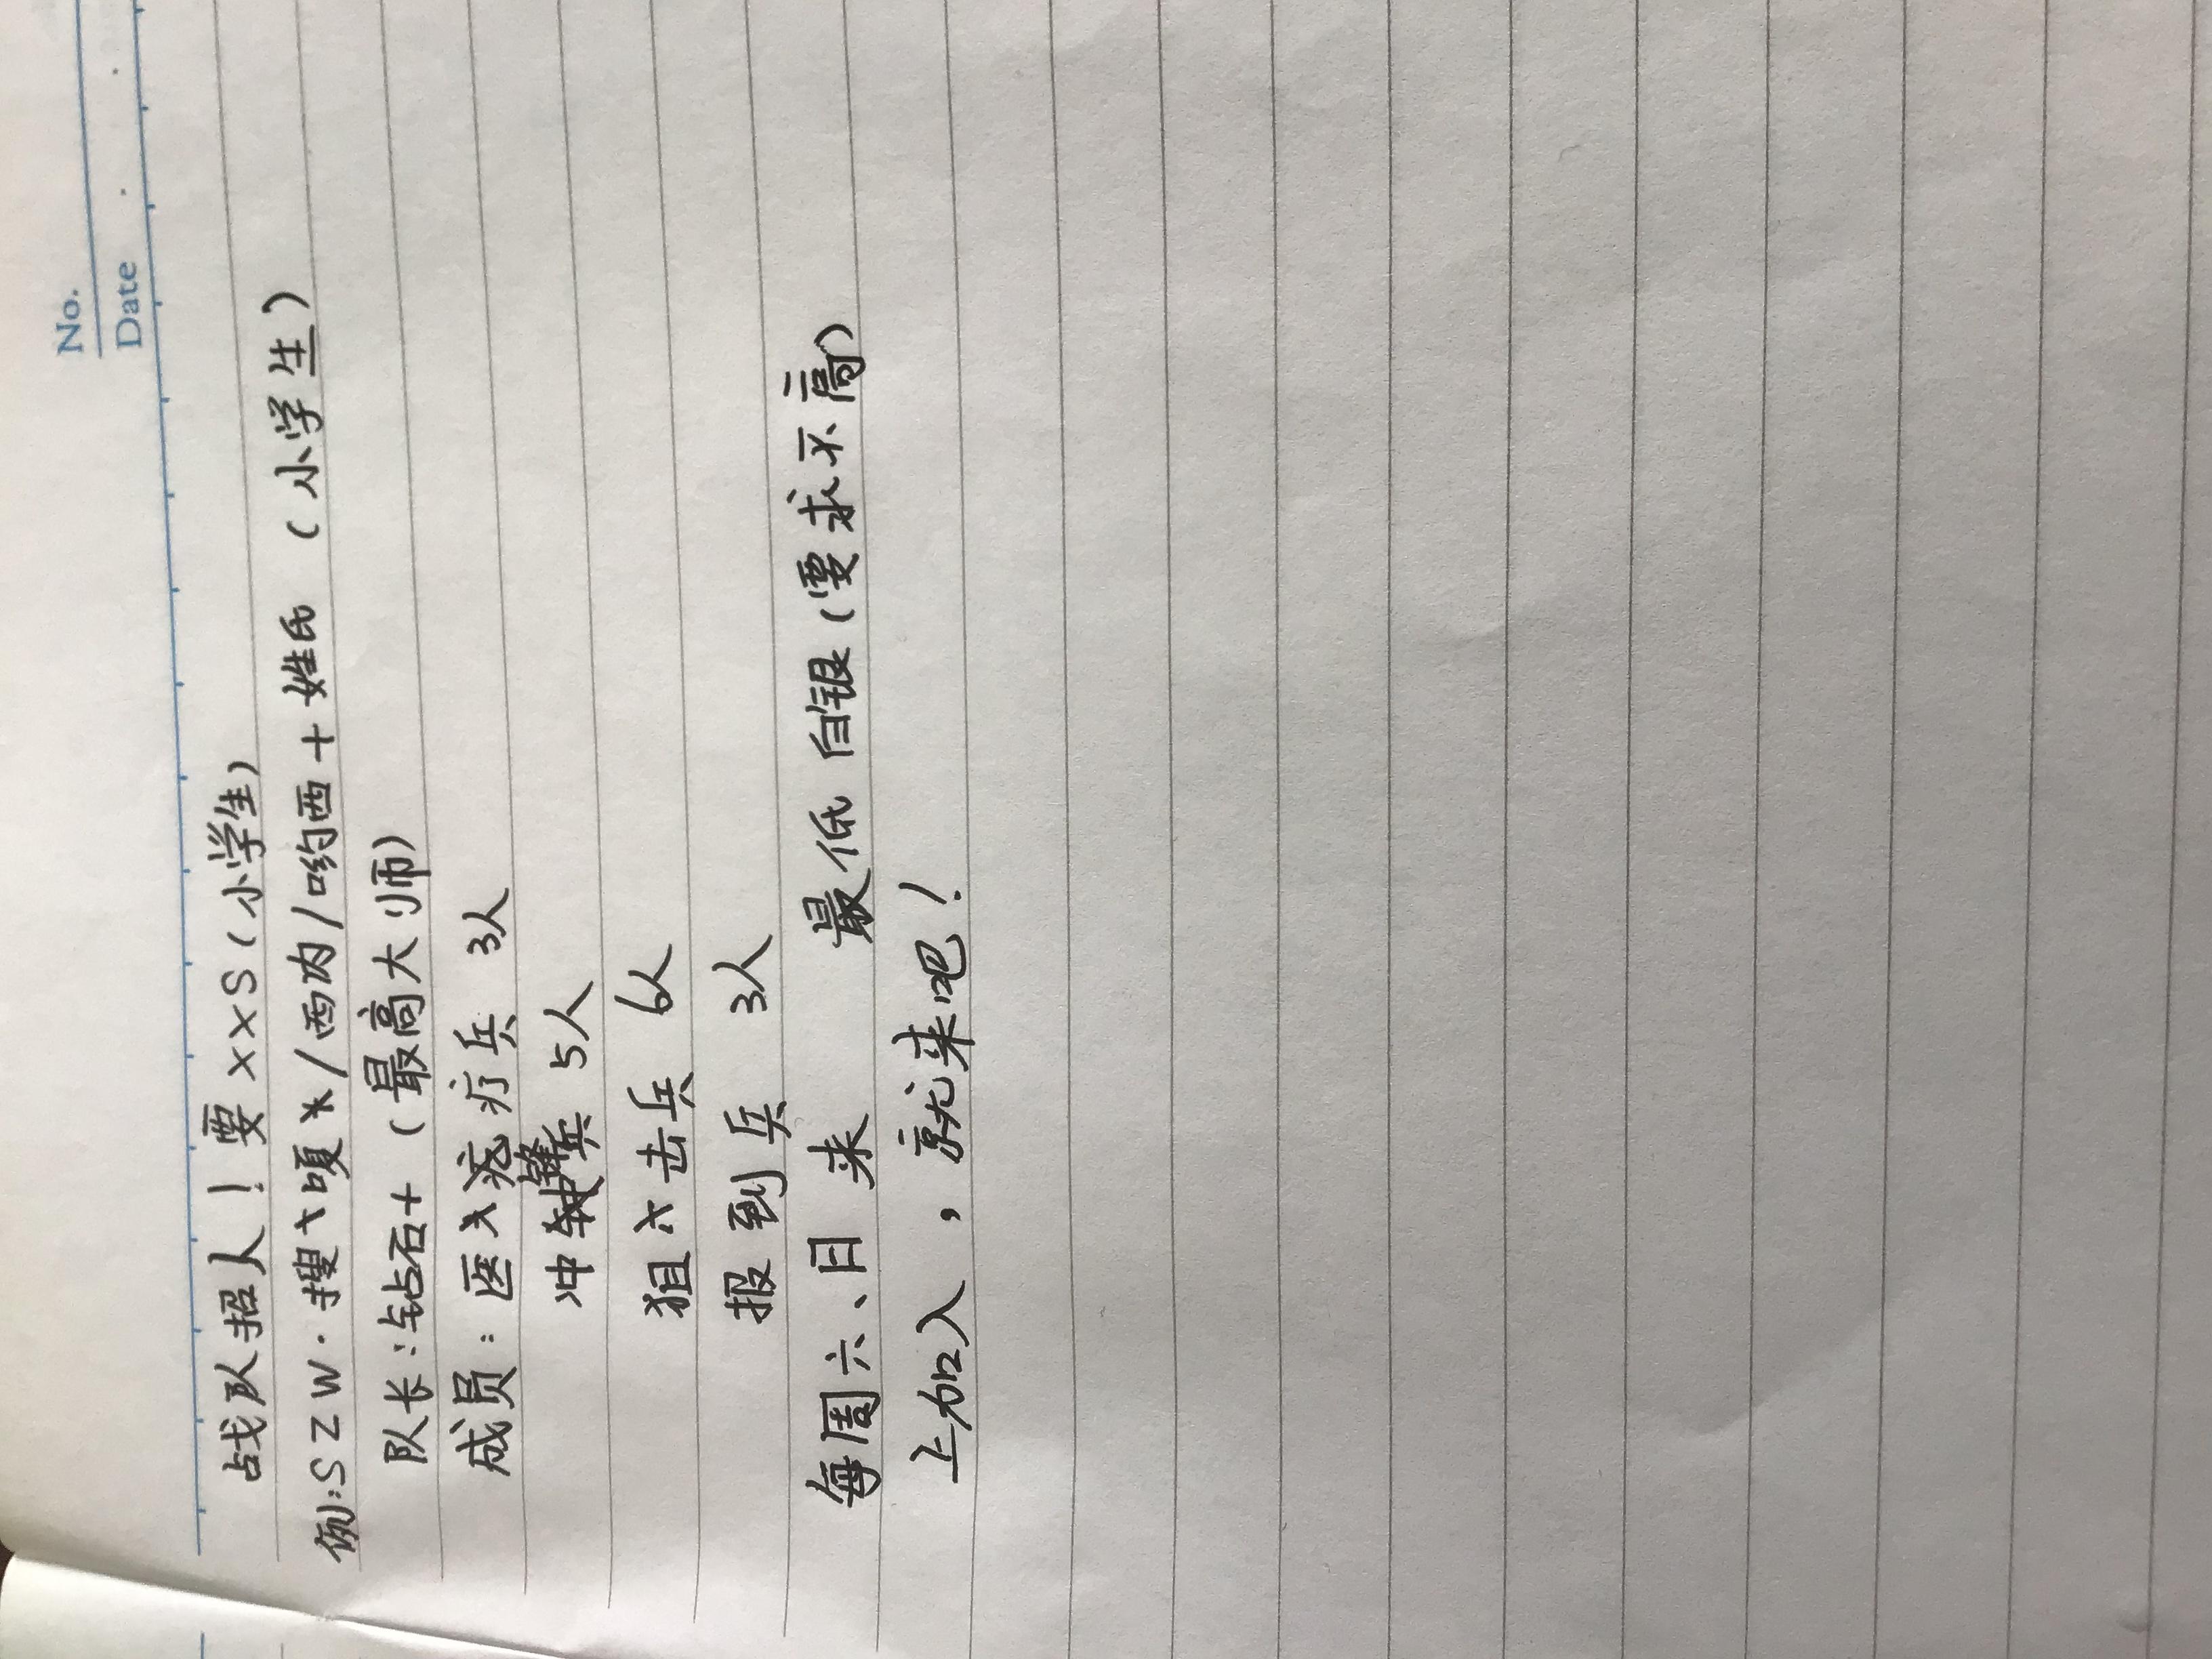 No.
Date
战队招人！要××S（小学生）
例：SZW·搜丶嗄*/西内/哟西+姓氏（小学生）
队长：钻石+（最高大师）
成员：医疗兵 3人
冲锋兵 5人
狙击兵 6人
报到兵 3人
每周六、日来 最低白银（要求不高）
上加入，就来吧！